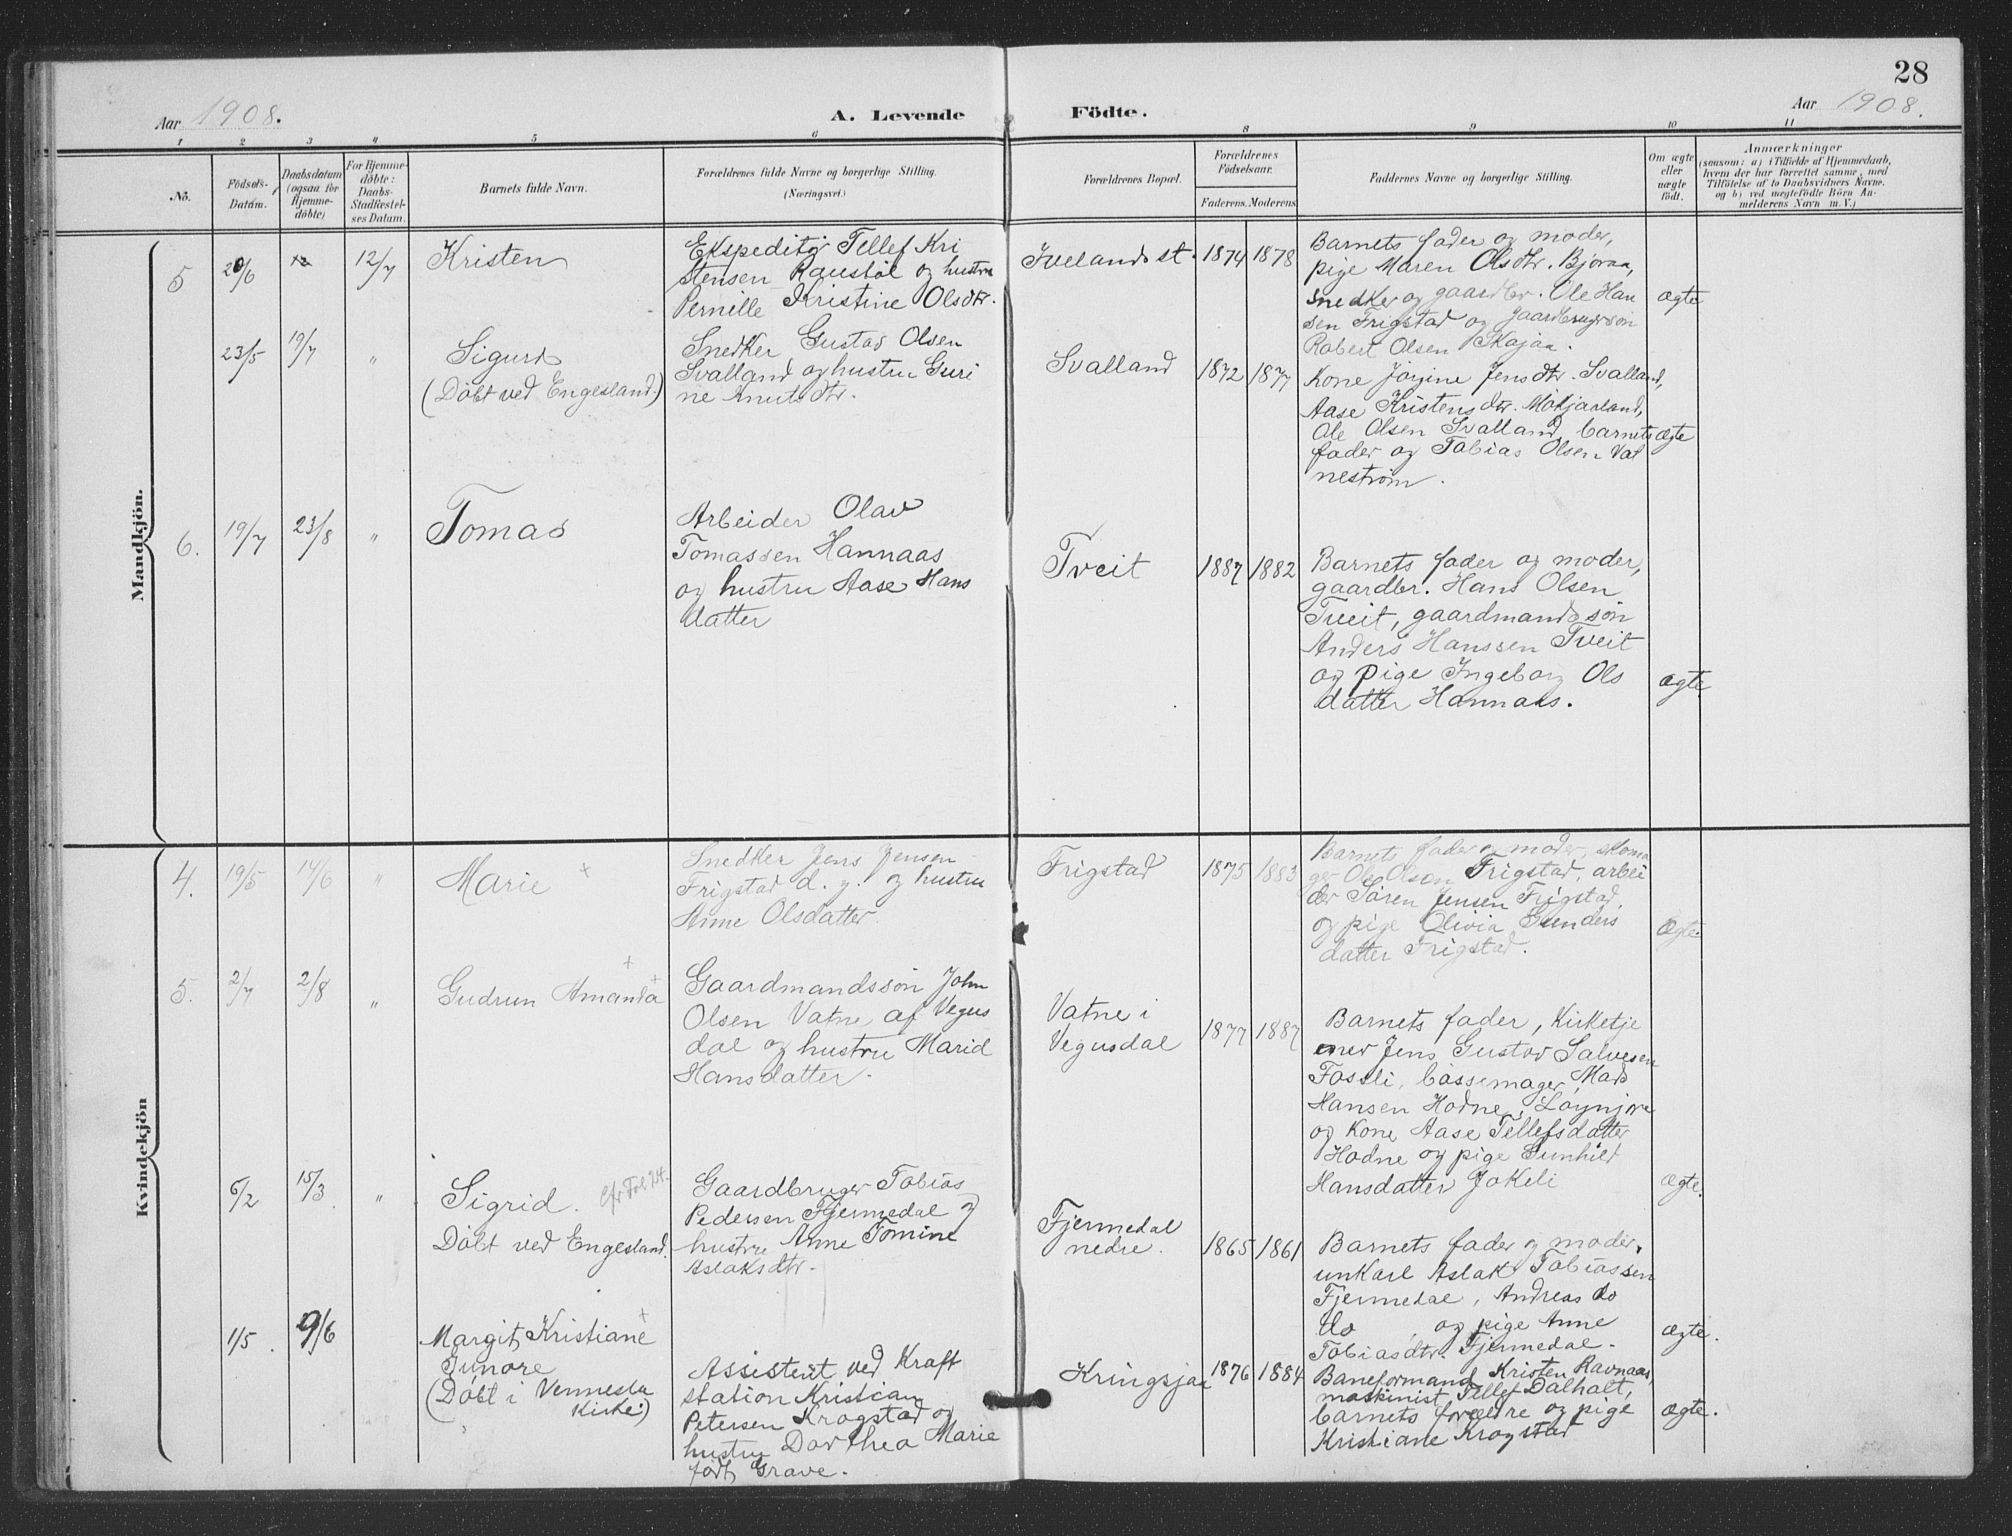 28
Aar 1908.
A. Levende Födte.
Aar 1908.
1 2 3 4 5 6 8 9 10 11
No.
Födsels-
Datum.
Daabsdatum
(ogsaa for
Hjemme-
döbte)
For Hjemme-
döbte:
Daabs-
Stadfæstel-
ses Datum.
Barnets fulde Navn.
Forældrenes fulde Navne og borgerlige Stilling.
(Næringsvei.)
Forældrenes Bopæl.
Forældrenes
Födselsaar.
Faderens. Moderens.
Faddernes Navne og borgerlige Stilling.
Om ægte
eller
uægte
födt.
Anmærkninger
(saasom: a) i Tilfælde af Hjemmedaab,
hvem der har forrettet samme, med
Tilföielse af to Daabsvidners Navne,
og b) ved uægtefödte Börn An-
melderens Navn m. V.)
Mandkjön.
5 20/6 12 12/7 Kristen
Ekspeditør Tellef Kri
stensen Raustøl og hustru
Pernille Kristine Olsdtr.
Ivelandst. 1874 1878
Barnets fader og moder,
pige Maren Olsdtr. Bjoraa,
snedker og gaardbr. Ole Han
sen Frigstad og gaardbrugersøn
Robert Olsen Skajaa.
ægte
23/5 19/7 " Sigurd
(Døbt ved Engesland.)
Snedker Gustav Olsen
Svalland og hustru Guri
ne Knutsdtr.
Svalland 1872 1877
Kone Jørgine Jensdtr. Svalland,
Aase Kristensdtr. Mokjaaland,
Ole Olsen Svalland, barnets
fader og Tobias Olsen Vat
nestrøm.
ægte
6. 19/7 23/8 " Tomas
Arbeider Olav
Tomassen Hannaas
og hustru Aase Hans
datter
Tveit 1887 1882
Barnets fader og moder,
gaardbr. Hans Olsen
Tveit, gaardmandssøn
Anders Hanssen Tveit
og pige Ingeborg Ols
datter Hannaas.
ægte
Kvindekjön
4. 19/5 14/6 " Marie +
Snedker Jens Jensen
Frigstad d. y. og hustru
Anne Olsdatter.
Frigstad 1875 1883
Barnets fader og moder, skoma
ger Ole Olsen Frigstad, arbei
der Søren Jensen Frigstad,
og pige Olivia Gunders
datter Frigstad.
Ægte.
5. 2/7 2/8 " Gudrun Amanda + +
Gaardmandssøn John
Olsen Vatne af Vegus
dal og hustru Marid
Hansdatter.
Vatne i
Vegusdal 1877 1887
Barnets fader, Kirketje
ener Jens Gustav Salvesen
Fossli, bøssemager Mads
Hansen Hodne,
og Kone Aase Tellefsdatter
Hodne og pige Gunhild
Hansdatter Jokeli
ægte.
6/2 15/3 " Sigrid. cfr Fol 24.
Døbt ved Engesland.
Gaardbruger Tobias
Pedersen Fjermedal og
hustru Anne Tomine
Aslaksdtr.
Fjermedal
nedre. 1865 1861
Barnets fader og moder,
unkarl Aslak Tobiassen
Fjermedal, Andreas do
do og pige Anne
Tobiasdtr. Fjermedal.
ægte.
1/5. 9/6 Margit Kristiane +
Gunore
(Døbt i Vennesla
Kirke.)
Assistent ved Kraft
station Kristian
Petersen Krogstad og
hustru Dorthea Marie
født Grave.
Kringsjaa 1876 1884
Baneformand Kristen Ravnaas,
maskinist Tellef Dalhalt,
barnets forældre og pige
Kristiane Krogstad
ægte.